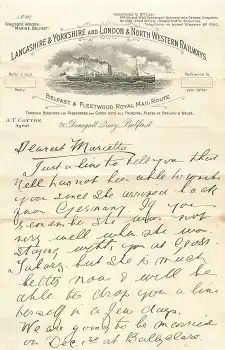 Telegraphic Address:
"MARINE, BELFAST"
LANCASHIRE & YORKSHIRE AND LONDON & NORTH WESTERN RAILWAYS.
Refer in your
Reply to
Reference to
your letter
BELFAST & FLEETWOOD ROYAL MAIL ROUTE
THROUGH BOOKINGS FOR PASSENGERS AND GOODS WITH ALL PRINCIPAL PLACES IN ENGLAND & WALES.
A.T. COTTON
Agent.
20 Donegall Quay, Belfast
Dearest Marietta
Just a line to tell you that
Nell has not been able to write
you since she arrived back
from Germany. If you
remember she was not
very well when she was
staying with you at
but she is much
better now & will be
able to drop you a line
herself in a few days,
We are going to be married
on Dec 1st at Ballyclare.